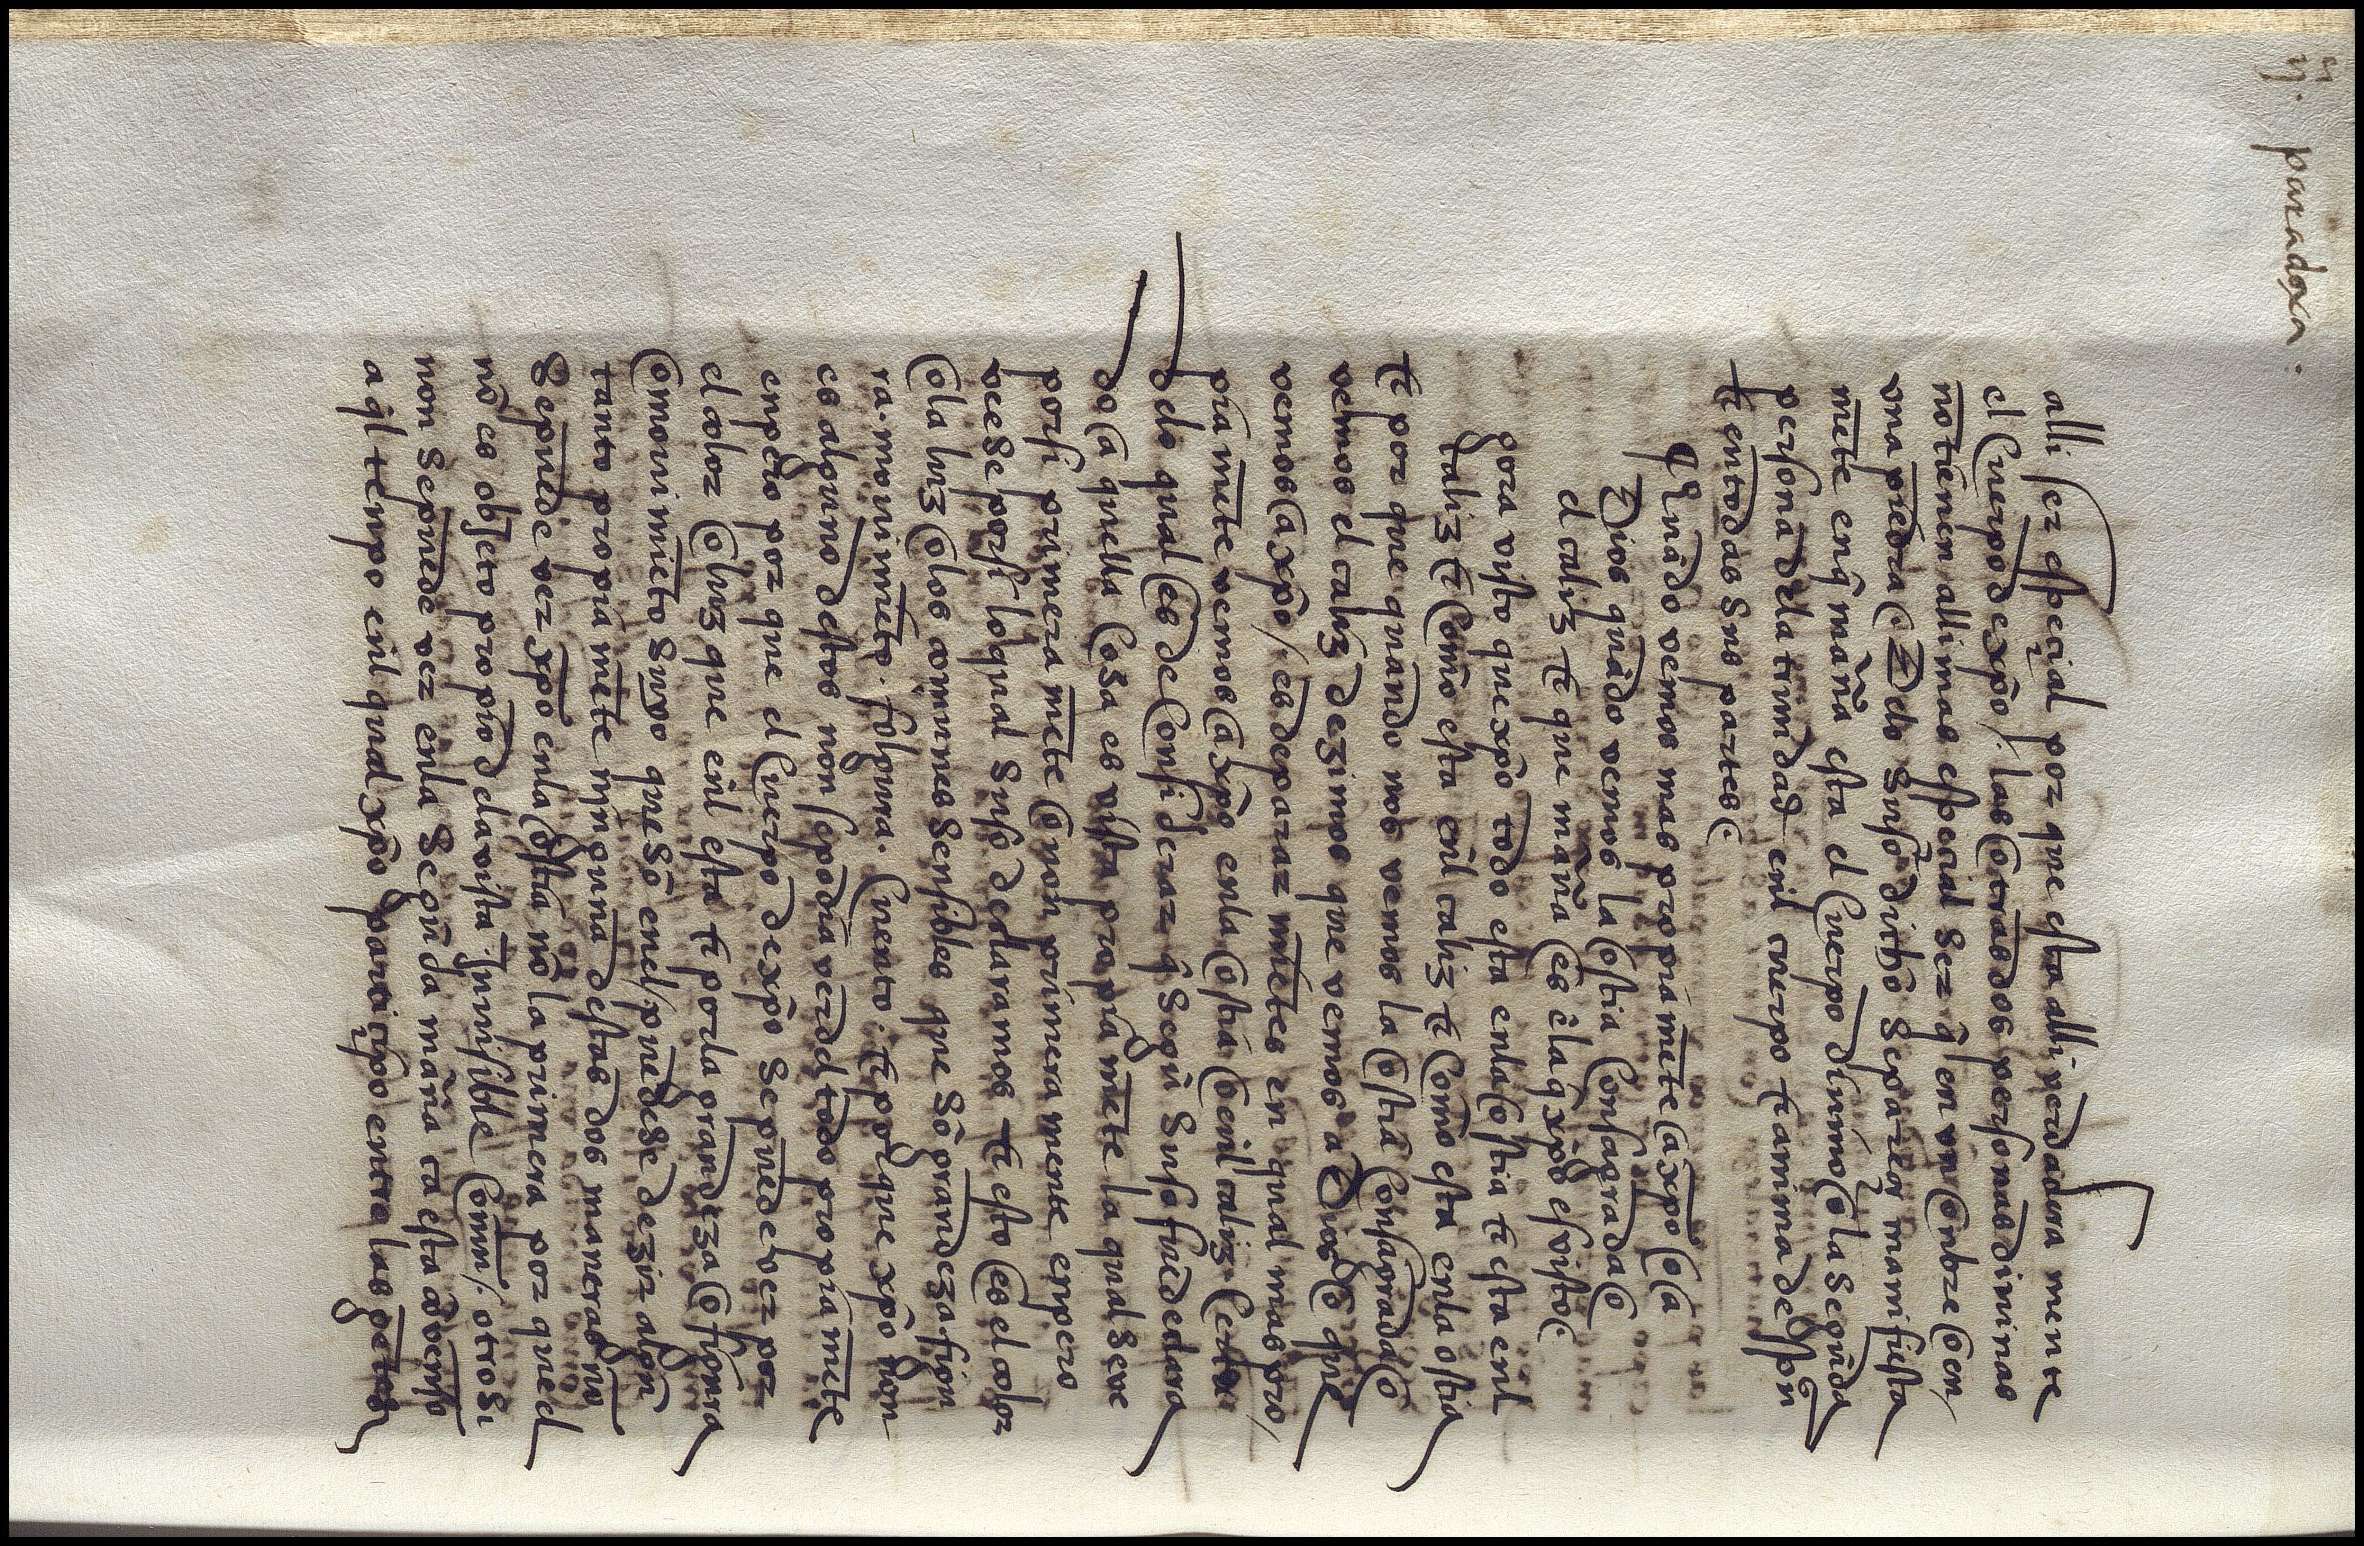 ij. paradoxa.
alli sez espeçial por que esta alli verdadera mente
el Cuerpo de xp̃o / las otras dos personas diuinas
no tienen alli mas espeçial sez q̃ en vn onbre o en
vna piedra / de lo suso dicho se paresçe manifiesta
mẽte en q̃ mañ̃a esta el Cuerpo diuino o la segũda
persona dela trinidad enl cuerpo τ anima de xp̃o
τ en todas sus partes
Quãdo vemos mas propia mẽte a xp̃o o a
Dios quãdo vemos la ostia Consagrada o
el caliz τ que mañ̃a es ẽ la q̃ xp̃o es visto
gora visto que xp̃o todo esta enla ostia τ esta enl
caliz τ Como esta enl caliz τ Como esta enla ostia
τ por que quando nos vemos la ostia Consagrada o
vemos el caliz dezimos que vemos a Dios o que
vemos a xp̃o / es de parar miẽtes en qual mas pro
pia mẽte vemos a xp̃o enla ostia o enl caliz.
lo qual es de Considerar q̃ segũ suso
do aquella Cosa es vista propia mẽte la qual se vee
por si primera mẽte o non primera mente enpero
vee se por si lo qual suso declaramos τ esto es el color
o la luz o los comunes sensibles que sõ grandeza. figu
ra. mouimiẽto. folgura. Cuento. τ porque xp̃o non
es alguno destos non se podria ver del todo propia mẽte
enpero por que el Cuerpo de xp̃o se puede ver por
el color o luz que enl esta τ por la grandeza o figura
o mouimiẽto suyo que sõ enel puede se dezir algũ
tanto propia mẽte ninguna destas dos maneras no
se puede ver xp̃o enla ostia nõ la primera por quel
nõ es objeto propio dela vista Inuisible Comun / otrosi
non se puede ver enla segũda mañ̃a ca esta
a q̃l tiẽpo enl qual xp̃o